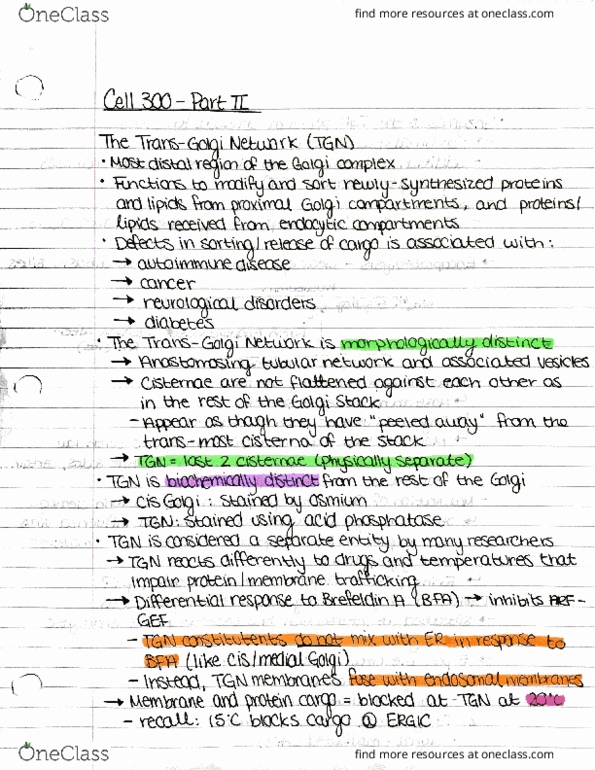 OneClass
find more resources at oneclass.com
Cell 300 - Part II
The Trans-Golgi Network (TGN)
• Most distal region of the Golgi complex
• Functions to modify and sort newly-synthesized proteins
and lipids from proximal Golgi compartments, and proteins/
lipids received from endocytic compartments
• Defects in sorting/release of cargo is associated with:
→ autoimmune disease
→ cancer
→ neurological disorders
→ diabetes
• The Trans-Golgi Network is morphologically distinct
→ Anastomosing tubular network and associated vesicles
→ Cisternae are not flattened against each other as
in the rest of the Golgi Stack
- Appear as though they have "peeled away" from the
trans-most cisterna of the stack
→ TGN = last 2 cisternae (physically separate)
• TGN is biochemically distinct from the rest of the Golgi
→ cis Golgi: stained by osmium
→ TGN: stained using acid phosphatase
• TGN is considered a separate entity by many researchers
→ TGN reacts differently to drugs and temperatures that
impair protein/membrane trafficking
→ Differential response to Brefeldin A (BFA) → inhibits ARF-
GEF
- TGN constitutents do not mix with ER in response to
BFA (like cis/medial Golgi)
- Instead, TGN membranes fuse with endosomal membranes
→ Membrane and protein cargo = blocked at TGN at 20°C
- recall: 15°C blocks cargo @ ERGIC
OneClass
find more resources at oneclass.com